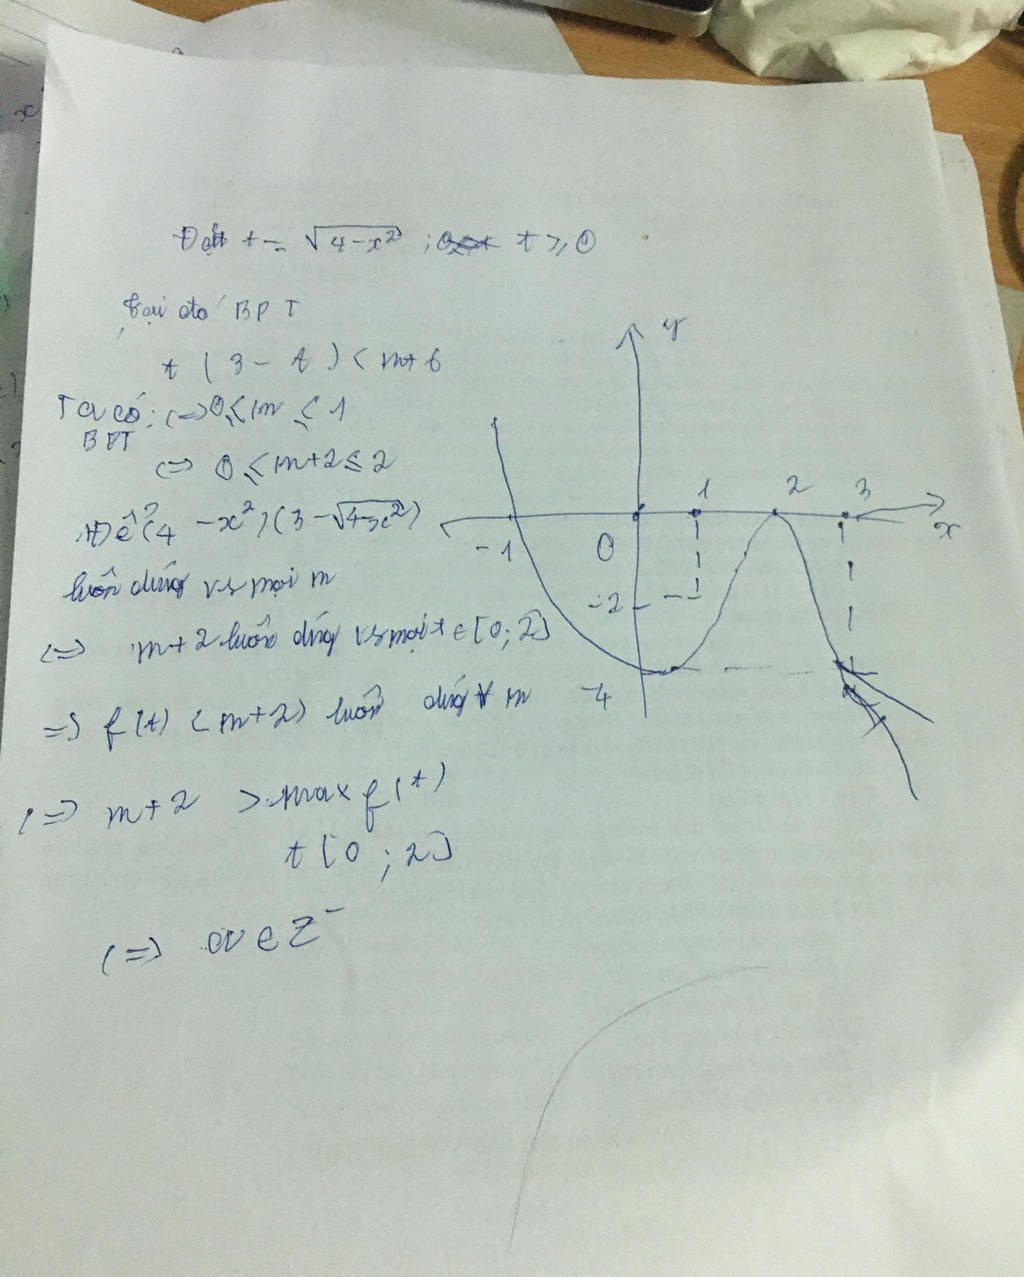 Đặt t = √(4-x²) ; t ≥ 0
Tại đó BPT
t (3 - t) < m+6
Ta có: (=) 0 ≤ m ≤ 1
BPT
(=) 0 ≤ m+2 ≤ 2
Để (4 -x²)(3-√(4-x²))
luôn đúng vs mọi m
(=) m+2 luôn đúng vs mọi t ∈ [0; 2]
=) f(t) < m+2) luôn đúng ∀ m
(=) m+2 > max f(t)
t [0 ; 2]
(=) ∈ Z⁻
y
1 2 3
x
-1 0
-2
-4